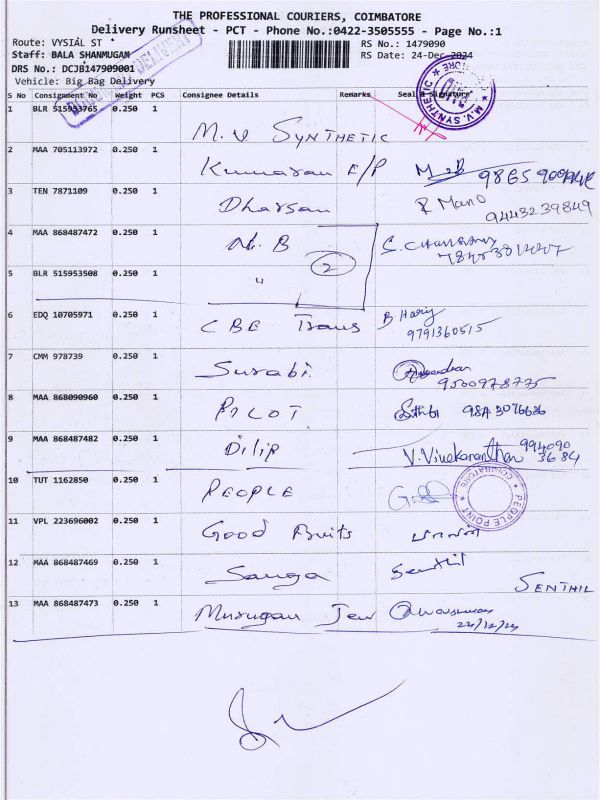 THE PROFESSIONAL COURIERS, COIMBATORE
Delivery Runsheet - PCT - Phone No.:0422-3505555 - Page No.:1
Route: VYSIAL ST
RS No.: 1479090
Staff: BALA SHANMUGAM
RS Date: 24-Dec-2024
DRS No.: DCJB147909001
Vehicle: Big Bag Delivery
S No Consignment No Weight PCS Consignee Details Remarks Seal & Signature
M.V. SYNTHETIC
1 BLR 515953765 0.250 1 M.V SYNTHETIC
2 MAA 705113972 0.250 1 Kumaran E/P
3 TEN 7871109 0.250 1 Dharsan R Mano 9443239849
4 MAA 868487472 0.250 1 N.B
2
5 BLR 515953508 0.250 1 "
6 EDQ 10705971 0.250 1 CBE Trans B Hary 9791360515
7 CMM 978739 0.250 1 Surabi. 9500978775
8 MAA 868090960 0.250 1 PILOT 9843076636
9 MAA 868487482 0.250 1 DILIP V.Vivekananthan 994090 3684
10 TUT 1162850 0.250 1 PEOPLE
PEOPLE POINT COIMBATORE
11 VPL 223696002 0.250 1 Good Fruits
12 MAA 868487469 0.250 1 Sanga Senthil SENTHIL
13 MAA 868487473 0.250 1 Murugan Jew
24/12/24